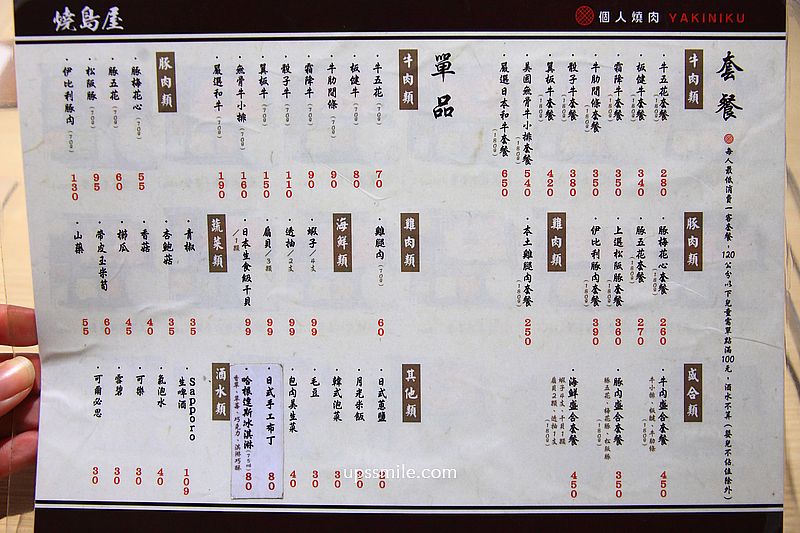 燒鳥屋
個人燒肉 YAKINIKU
套餐
每人最低消費一客套餐，120公分以下兒童需單點滿100元，酒水不算（嬰兒不佔位除外）
牛肉類
牛五花套餐(180g) 280
板健牛套餐(180g) 340
霜降牛套餐(180g) 350
牛肋間條套餐(180g) 350
骰子牛套餐(180g) 380
翼板牛套餐(180g) 420
美國無骨牛小排套餐(180g) 540
嚴選日本和牛套餐(180g) 650
豚肉類
豚梅花心套餐(180g) 260
豚五花套餐(180g) 270
上選松阪豚套餐(180g) 360
伊比利豚肉套餐(180g) 390
雞肉類
本土雞腿肉套餐(180g) 250
盛合類
牛肉盛合套餐 450
牛小排、板健、牛肋條(180g)
豚肉盛合套餐 350
豚五花、梅花、松阪豚(180g)
海鮮盛合套餐 450
蝦子4支、干貝1顆
扇貝2顆、透抽1支(180g)
單品
牛肉類
牛五花(70g) 70
板健牛(70g) 80
牛肋間條(70g) 90
霜降牛(70g) 90
骰子牛(70g) 110
翼板牛(70g) 150
無骨牛小排(70g) 160
嚴選和牛(70g) 190
豚肉類
豚梅花心(70g) 55
豚五花(70g) 60
松阪豚(70g) 95
伊比利豚肉(70g) 130
雞肉類
雞腿肉(70g) 60
海鮮類
蝦子/4支 99
透抽/2支 99
扇貝/3顆 99
日本生食級干貝/1顆 99
蔬菜類
青椒 35
杏鮑菇 35
香菇 40
櫛瓜 45
帶皮玉米筍 60
山藥 55
其他類
日式蔥鹽
月光米飯
韓式泡菜
毛豆 30
包肉美生菜 40
日式手工布丁 80
哈根達斯冰淇淋(75ml) 80
香草、草莓、巧克力、淇淋巧酥
酒水類
Sapporo生啤酒 109
氣泡水 40
可樂 30
雪碧 30
可爾必思 30
upssmile.com